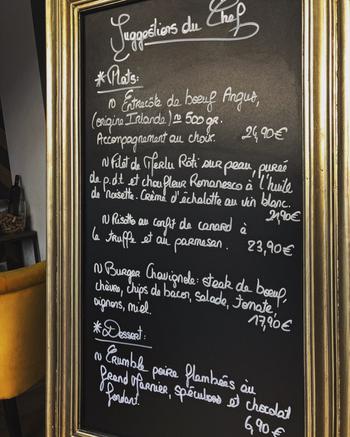 Suggestions du Chef
* Plats:
~ Entrecôte de boeuf Angus,
(origine Irlande) ~ 500gr.
Accompagnement au choix. 24,90€
~ Filet de Merlu Rôti sur peau, purée
de p.d.t et choufleur Romanesco à l'huile
de noisette. Crème d'échalotte au vin blanc.
21,90€
~ Risotto au confit de canard à
la truffe et au parmesan. 23,90€
~ Burger Chavignole: steak de boeuf,
chèvre, chips de bacon, salade, tomate,
oignons, miel. 17,90€
* Dessert:
~ Crumble poire flambées au
Grand Marnier, spéculoos et chocolat
fondant. 6,90€